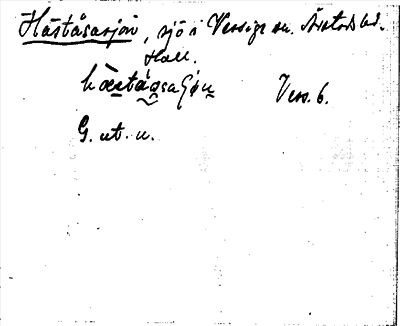 Häståsasjön, sjö i Versige sn. Årstads hd.
Hall.
hæståsaʃøn Vers. 6.
G. ut. u.